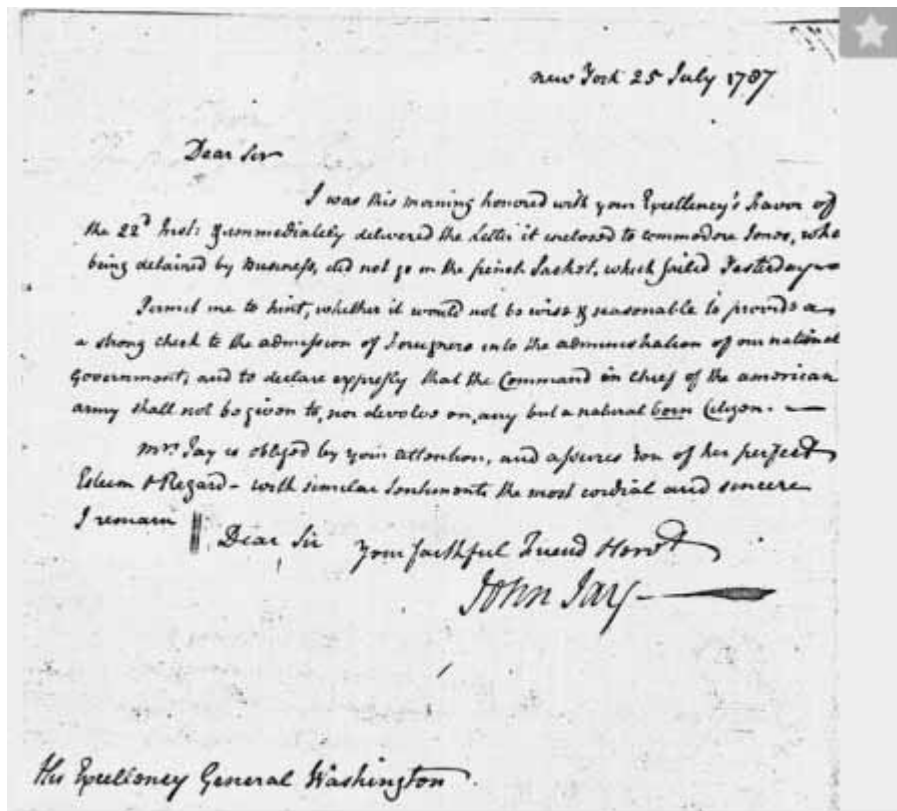 New York 25 July 1787
Dear Sir
I was this morning honored with your Excellency's Favor of
the 22d Inst: & immediately delivered the Letter it enclosed to commodore Jones, who
being detained by Business, did not go in the french Packet, which sailed Yesterday
Permit me to hint, whether it would not be wise & seasonable to provide a
a strong check to the admission of Foreigners into the administration of our national
Government; and to declare expressly that the Command in chief of the american
army shall not be given to, nor devolve on, any but a natural born Citizen.
Mrs. Jay is obliged by your attention, and assures You of her perfect
Esteem & Regard - with similar Sentiments the most cordial and sincere
I remain Dear Sir Your faithful Friend & Servt
John Jay
His Excellency General Washington.